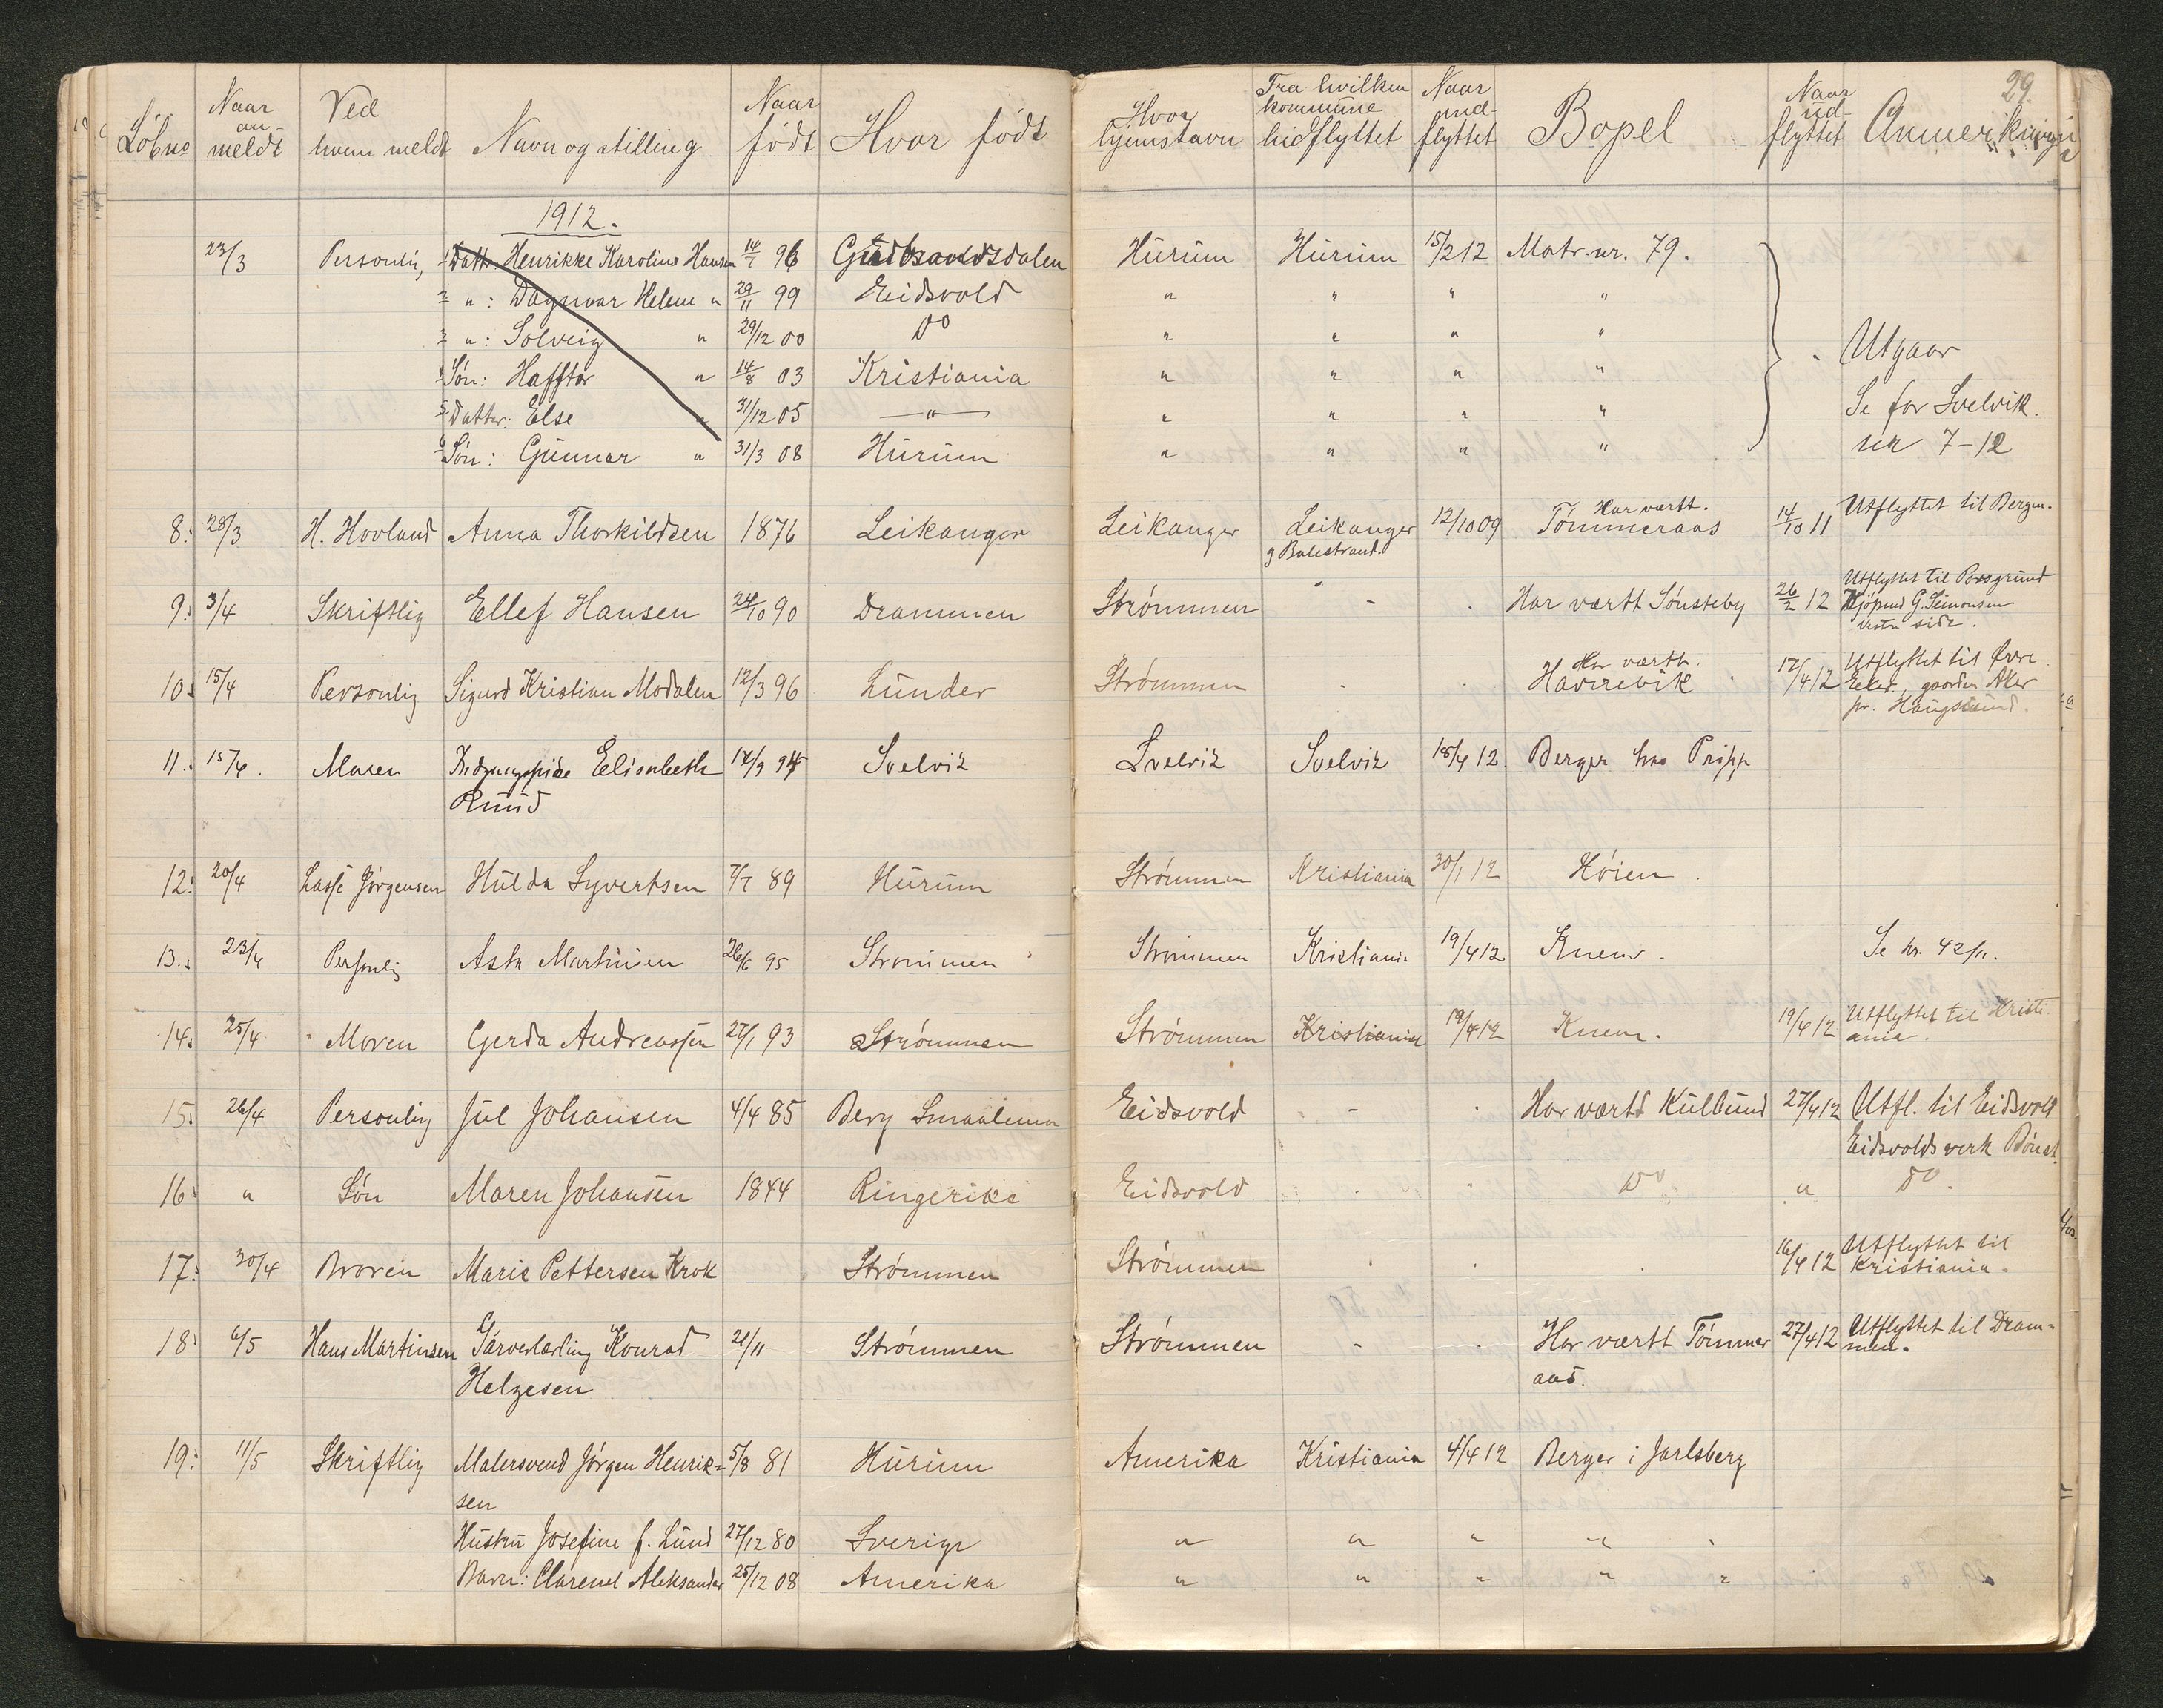 29
Løbno Naar an- meldt Ved hvem meldt Navn og stilling Naar født Hvor født Hvor hjemstavn Fra hvilken kommune hidflyttet Naar ind- flyttet Bopel Naar ud- flyttet Anmerkninger
1912.
23/3 Personlig, 1 Datt. Henrikke Karoline Hansen 14/7 96 Gudbrandsdalen Hurum Hurum 15/2 12 Matr. nr. 79.
2 " : Dagmar Helene " 29/11 99 Eidsvold " " " "
3 " : Solveig " 29/12 00 Do " " " " Utgaar
4 Søn: Hafftor " 14/8 03 Kristiania " " " "
5 Datter: Else " 31/12 05 " " " " " Se for Svelvik.
6 Søn: Gunnar " 31/3 08 Hurum " " " " nr 7-12
8. 28/3 H. Hovland Anna Thorkildsen 1876 Leikanger Leikanger Leikanger 12/10 09 Har vært. Tømmeraas 14/10 11 Utflyttet til Bergen.
g Balestrand.
9. 3/4 Skriftlig Ellef Hansen 24/10 90 Drammen Strømmen - Har vært Sønsteby 26/2 12 Utflyttet til Porsgrund
Kjøpmd G. Simonsen
vestre side.
10. 15/4 Personlig Sigurd Kristian Modalen 12/3 96 Lunder Strømmen - Har vært. Haverevik 17/4 12 Utflyttet til Øvre
Eker, gaarden Aker
pr. Haugsund.
11. 15/4. Moren Elisabeth 14/9 94 Svelvik Svelvik Svelvik 15/4 12. Berger hos Pripp
Ruud
12. 20/4 Lasse Jørgensen Hulda Syvertsen 7/7 89 Hurum Strømmen Kristiania 30/1 12 Høien.
13. 23/4 Personlig Asta Martinsen 26/6 95 Strømmen Strømmen Kristiania 19/4 12 Knem. Se nr. 42/11.
14. 25/4 Moren Gerda Andreassen 27/1 93 Strømmen Strømmen Kristiania 19/4 12 Knem. 19/4 12 Utflyttet til Kristi-
ania.
15. 26/4 Personlig Jul Johansen 4/4 85 Berg Smaalenene Eidsvold - Har vært Kulbund 27/4 12 Utfl. til Eidsvold
Eidsvolds verk Bønst.
16. " Søn Maren Johansen 1844 Ringerike Eidsvold Do " Do.
17. 30/4 Broren Marie Pettersen Krok Strømmen Strømmen 16/4 12 Utflyttet til
Kristiania.
18. 6/5 Hans Martinsen Garverlærling Konrad 21/11 Strømmen Strømmen - Har vært Tømmer 27/4 12 Utflyttet til Dram-
Helgesen aas. men.
19. 11/5 Skriftlig Malersvend Jørgen Henrik- 5/8 81 Hurum Amerika Kristiania 4/4 12 Berger i Jarlsberg
sen
Hustru Josefine f. Lund 27/12 80 Sverige " " " "
Barn: Clarenc Aleksander 25/12 08 Amerika " " " " "